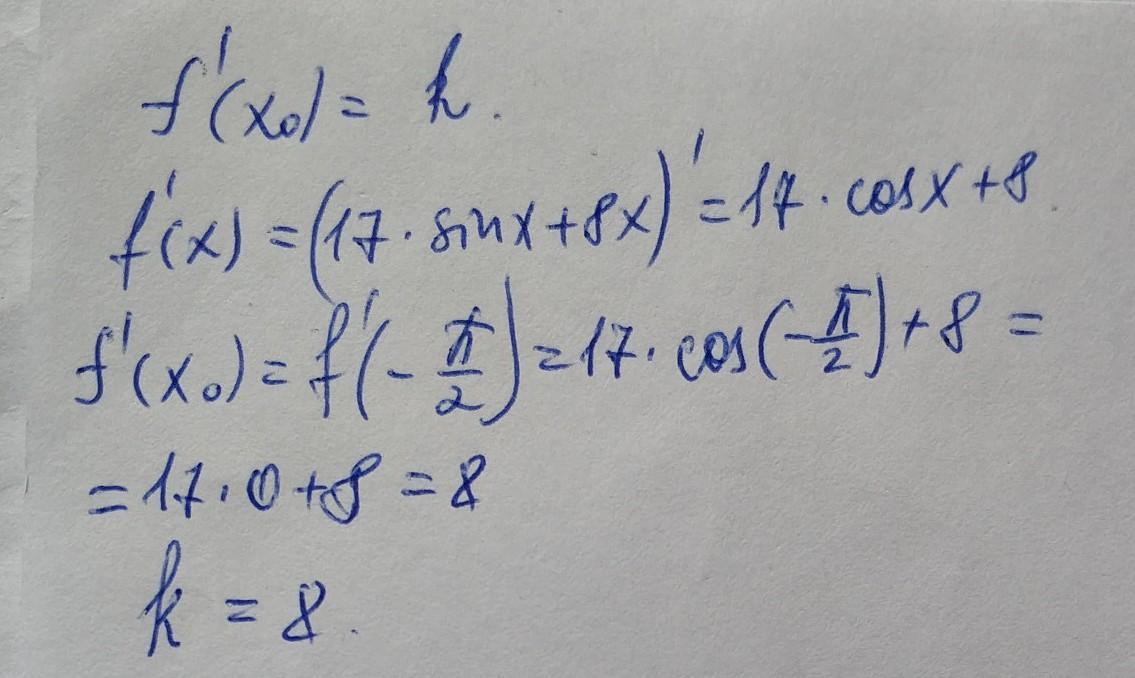 f'(x₀) = k.
f'(x) = (17 · sinx + 8x)' = 17 · cosx + 8
f'(x₀) = f'(-π/2) = 17 · cos(-π/2) + 8 =
= 17 · 0 + 8 = 8
k = 8.